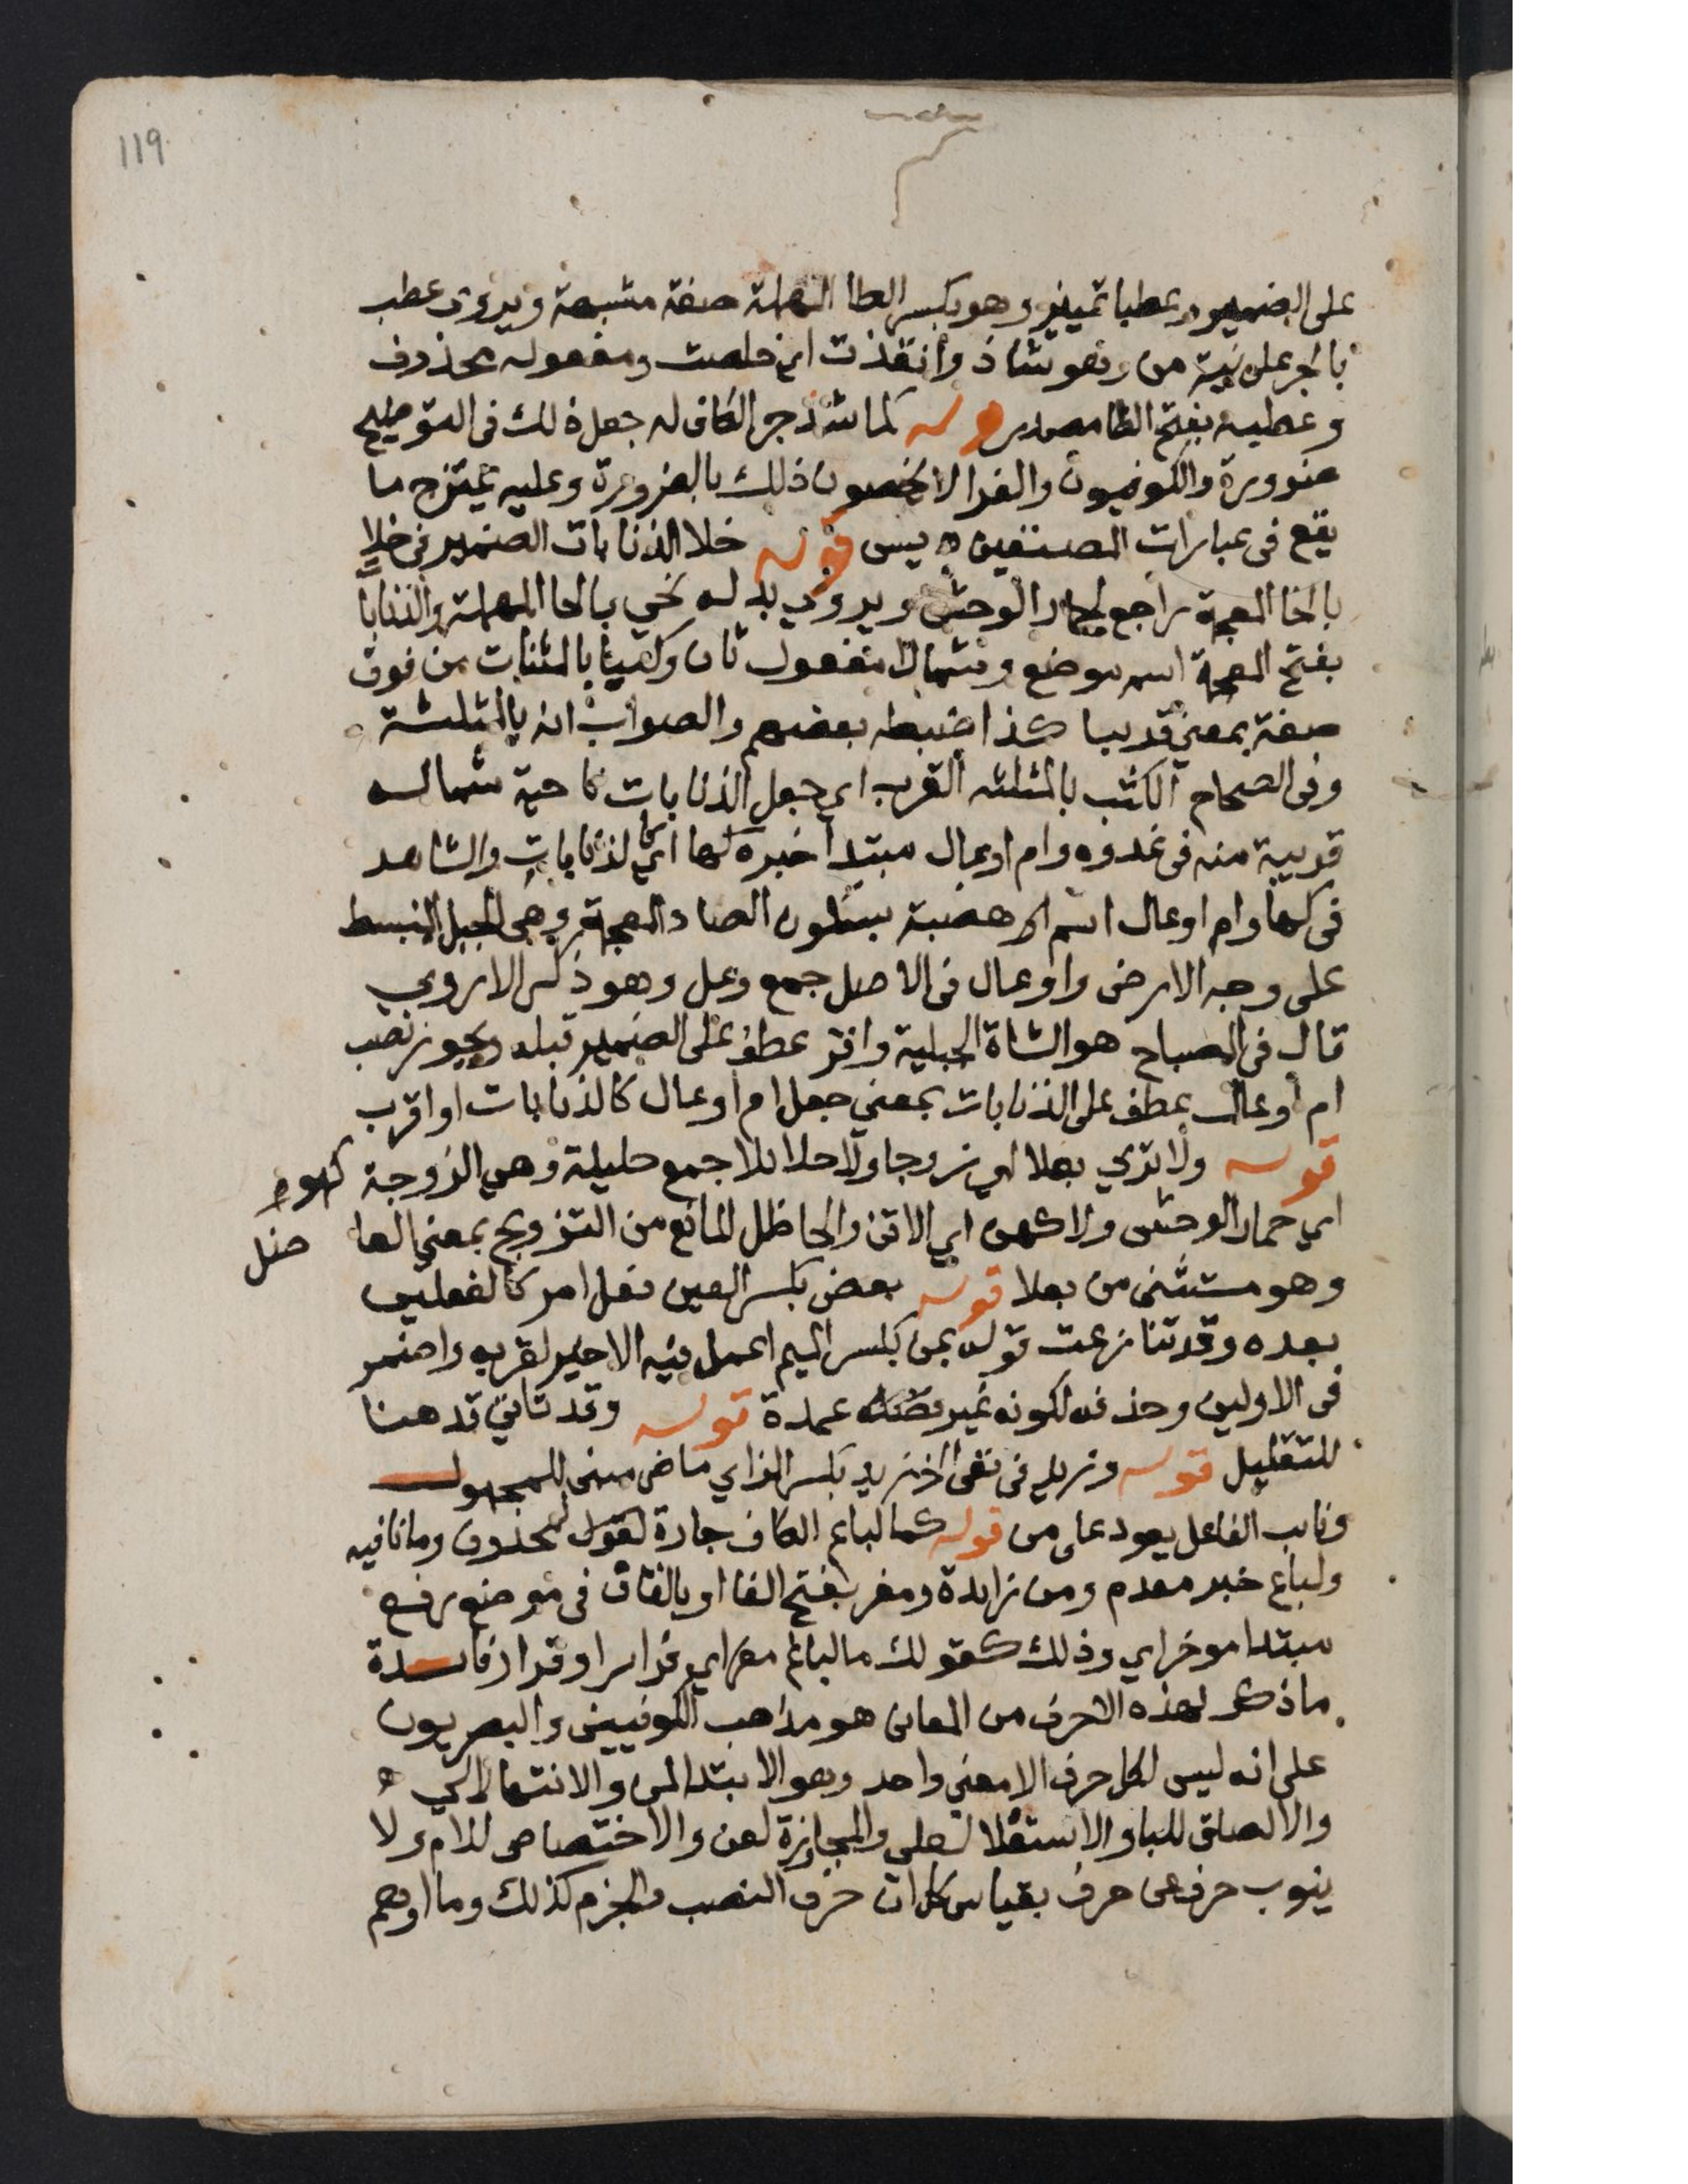 119
على الضمير وعطبا تمييز وهو بكسر الطا المهملة صفة مشبهة ويروى عطب
بالجر على نية من وهو شاذ وانقذت اي خلصت ومفعوله محذوف
وعطبه بفتح الطا مصدر قوله كما شذ جر الكاف له جعل ذلك في التوضيح
ضرورة والكوفيون والفرا لا يخصون ذلك بالضرورة وعليه يتخرج ما
يقع في عبارات المصنفين ه يس قوله خلا الذنابات الضمير في خلا
بالخا المعجمة راجع لحمار الوحش ويروي بدله نحي بالحا المهملة والذنابا
بفتح المعجمة اسم موضع وشمالا مفعول ثان وكثبا بالمثنات من فوق
صفة بمعني قريبا كذا ضبطه بعضهم والصواب انه بالمثلثة
وفي الصحاح الكثب بالمثلثه القرب اي جعل الذنابات ناحية شماله
قريبة منه في غدوه وام اوعال مبتدأ خبره كها اي كالذنابات والشاهد
في كها وام اوعال اسم هضبة بسكون الضاد المعجمة وهي الجبل المنبسط
على وجه الارض واوعال في الاصل جمع وعل وهو ذكر الاروي
قال في المصباح هو الشاة الجبلية واقر عطف على الضمير قبله ويجوز نصب
ام اوعال بعطف على الذنابات بمعني جعل ام اوعال كالذنابات او اقرب
قوله ولا تري بعلا اي زوجا ولا حلائلا جمع حليلة وهي الزوجة كهو
اي حمار الوحش ولا كهن اي الاتن والحاظل المانع من التزويج بمعني العا
ضل
وهو مستثنى من بعلا قوله بعض بكسر العين فعل امر كالفعلين
بعده وقد تنازعت قوله بمن بكسر الميم اعمل فيه الاخير لقربه واضمر
في الاولين وحذفه لكونه غير عمدة قوله وقد تاتي قد هنا
للتقليل قوله وزيد في نفي الخ زيد بكسر الزاي ماض مبني للمجهول
ونايب الفاعل يعود على من قوله كما لباغ الكاف جارة لقول محذوف وما نافيه
ولباغ خبر مقدم ومن زايدة ومفر بفتح الفا او بالقاف في موضع رفع
مبتدا موخر اي وذلك كقولك ما لباغ مفر اي فرار او قرار فايدة
ما ذكر لهذه الاحرف من المعاني هو مذاهب الكوفيين والبصريون
على انه ليس لكل حرف الا معني واحد وهو الابتدا لمن والانتها لالي ه
والالصاق للبا والاستعلا لعلي والمجاوزة لعن والاختصاص للام ولا
ينوب حرف عن حرف بقياس كما ان حرف النصب والجزم كذلك وما اوهم